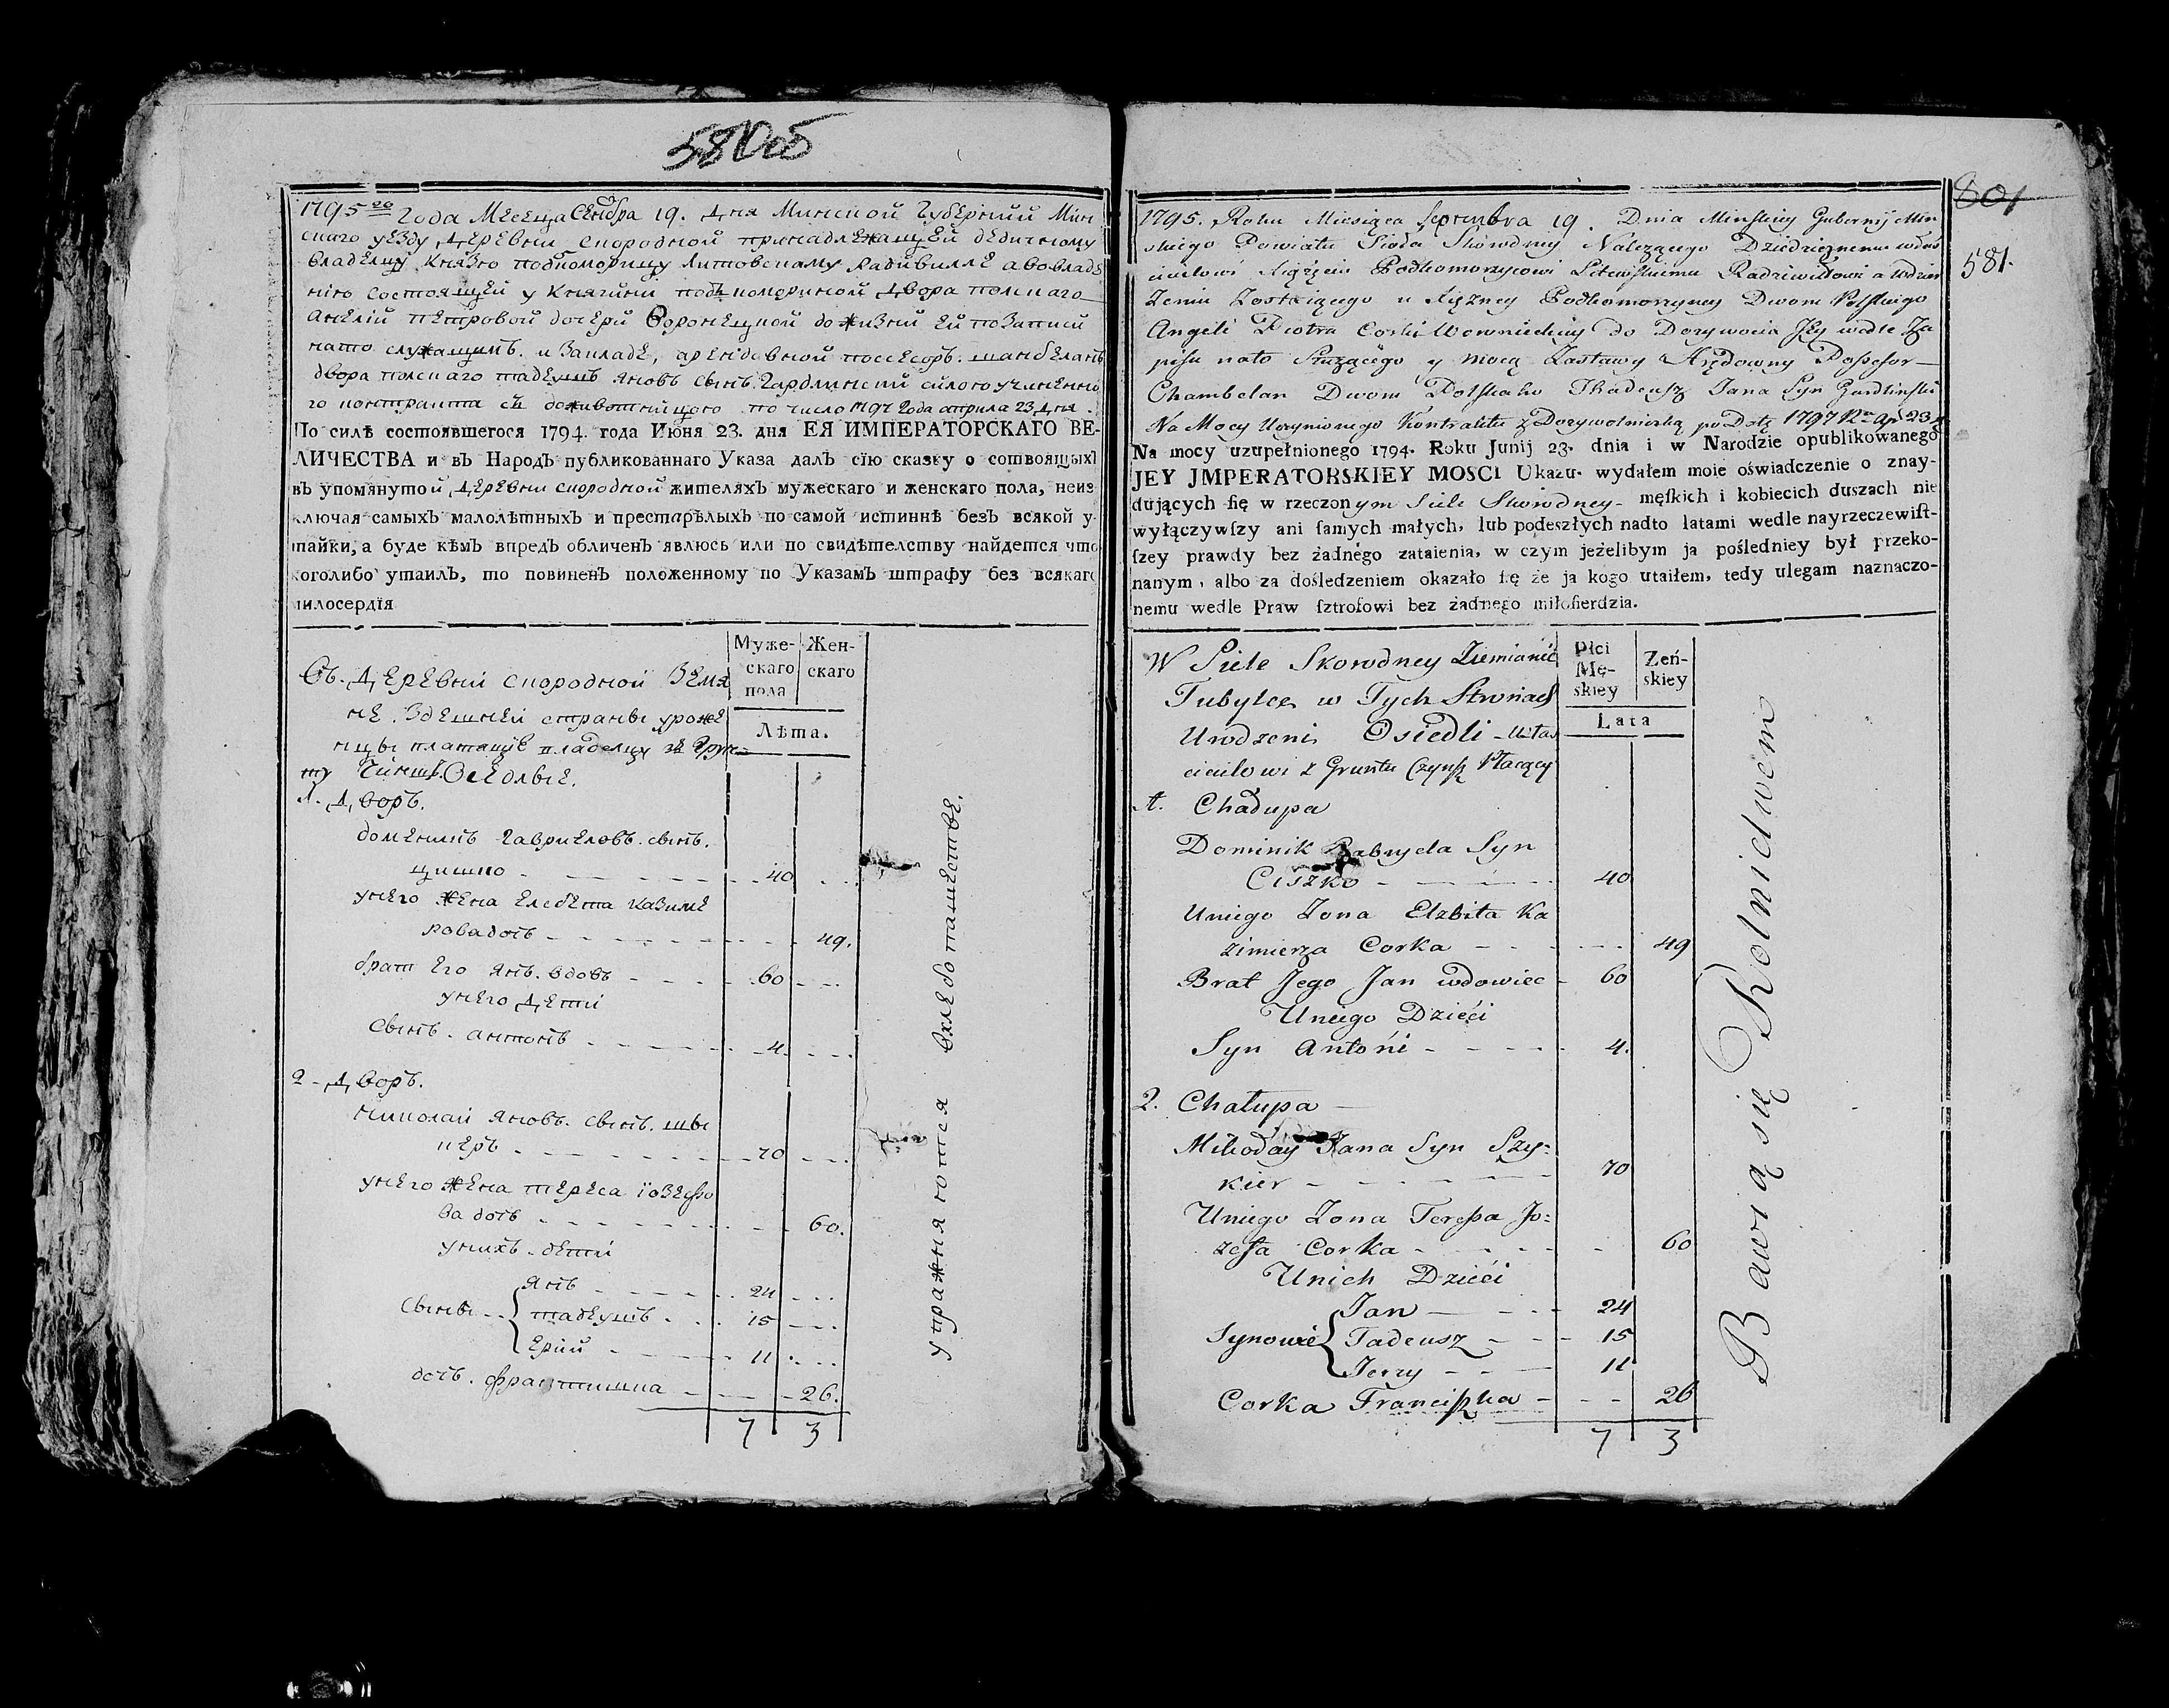 1795го Года Месеца Сентобра 19. Дня Минской Губерний Мин
скаго уезду Деревни Скородной принадлежащей дедичному
владелцу Князю подкоморицу Литовскому Радивилле а вовладе
нию состоящей у Княгини подкоморинои Двора полскаго
Анелій петровой дочери Воронецкой до жизни ей по записи
на то служащимъ. и Закладе, арендовной поссесоръ. шамбеланъ
Двора полскаго тадеушъ яновъ сынъ. Гардлинский силою учиненно
го контракта съ доживотницою по число 1797 Года априла 23 дня.
По силѣ состоявшегося 1794. года Июня 23. дня ЕЯ ИМПЕРАТОРСКАГО ВЕ-
ЛИЧЕСТВА и въ Народъ публикованнаго Указа далъ сїю сказку о сотвоящыхъ
въ упомянутой Деревни скородной жителяхъ мужескаго и женскаго пола, неиз
ключая самыхъ малолѣтныхъ и престарѣлыхъ по самой истиннѣ безъ всякой у-
тайки, а буде кѣмъ впредъ обличенъ явлюсь или по свидѣтелству найдется что
коголибо утаилъ, то повиненъ положенному по Указамъ штрафу без всякаго
милосердїя
Муже-скаго пола
Жен-скаго
Лѣта.
Въ Деревни скородной Земя
не. Здешней страны уроже
нцы платящие владелцу зъ Грун
ту Чиншъ. Оседлые.
1. Дворъ.
доменикъ гавриеловъ. сынъ.
цишко - 40
унего жена елсбета казиме
рова дочь - 49.
братъ Его янъ. вдовъ - 60
унего дети
сынъ. антонъ - 4.
2 - Дворъ.
николай яновъ. сынъ. шы
керъ - 70
унего жена тереса іозефо
ва дочь - 60.
унихъ. дети
янъ - 24
сыны - тадеушъ - 15
ерий - 11
дочь. францишка - 26.
7 3
упражняются вхлебопашестве.
801
581.
1795. Roku Miesiąca Septembra 19. Dnia Minskiey Gubernij Min
skiego Powiatu Sioła Skorodney Nalezącego Dziedzicznemu włas
cicielowi Xiążęciu Podkomorzycowi Litewskiemu Radziwiłłowi a w dzier
żeniu Zostaiącego u Xiężney Podkomorzyney Dworu Polskiego
Angeli Piotra Corki Woronieckiey do Dozywocia Jey wedle Za
pisu nato Służącego y mocą Zastawy Arędowny Possessor
Chambelan Dworu Polskaho Thadeusz Jana Syn Gardlinski
Na Mocy Uczynionego Kontraktu z Dozywotniczką po Datę 1797 Ru Ap 23 d
Na mocy uzupełnionego 1794. Roku Junij 23. dnia i w Narodzie opublikowanego
JEY JMPERATORSKIEY MOSCI Ukazu. wydałem moie oświadczenie o znay-
dujących ſię w rzeczonym Siele Skorodney - męſkich i kobiecich duszach nie
wyłączywſzy ani ſamych małych, lub podeszłych nadto latami wedle nayrzeczewiſt-
ſzey prawdy bez żadnego zataienia, w czym jeżelibym ja pośledniey był przeko-
nanym, albo za dośledzeniem okazało ſię że ja kogo utaiłem, tedy ulegam naznaczo-
nemu wedle Praw ſztrofowi bez żadnego miłoſierdzia.
Płci Mę-skiey
Zeń-skiey
Lata
W Siele Skorodney Ziemianie
Tubylce w Tych Stronach
Urodzeni Osiedli - włas
cicielowi z Gruntu Czynsz Płacący
1. Chałupa
Dominik Gabryela Syn
Ciszko - 40
Uniego Zona Elzbita Ka
zimierza Corka - 49
Brat Jego Jan wdowiec - 60
Uniego Dzieći
Syn Antońi - 4.
2. Chałupa
Mikołay Jana Syn Szy=
kier - 70
Uniego Zona Teressa Jo=
zefa Corka - 60
Unich Dzieći
Jan - 24
Synowie Tadeusz - 15
Jerzy - 11
Corka Franciszka - 26
7 3
Bawią się Rolnictwem